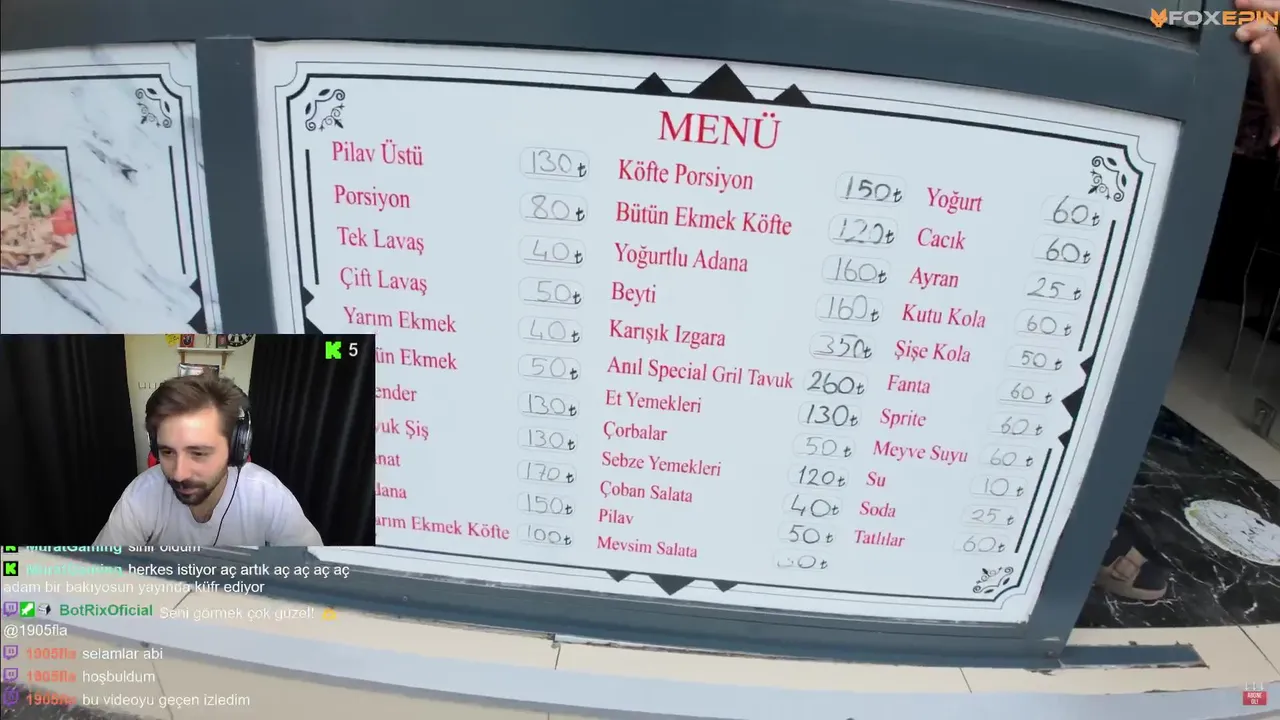 FOXEPIN
MENÜ
Pilav Üstü 130₺
Porsiyon 80₺
Tek Lavaş 40₺
Çift Lavaş 50₺
Yarım Ekmek 40₺
ün Ekmek 50₺
ender 130₺
uk Şiş 130₺
nat 170₺
dana 150₺
arım Ekmek Köfte 100₺
Köfte Porsiyon 150₺
Bütün Ekmek Köfte 120₺
Yoğurtlu Adana 160₺
Beyti 160₺
Karışık Izgara 350₺
Anıl Special Gril Tavuk 260₺
Et Yemekleri 130₺
Çorbalar 50₺
Sebze Yemekleri 120₺
Çoban Salata 40₺
Pilav 50₺
Mevsim Salata
Yoğurt 60₺
Cacık 60₺
Ayran 25₺
Kutu Kola 60₺
Şişe Kola 50₺
Fanta 60₺
Sprite 60₺
Meyve Suyu 60₺
Su 10₺
Soda 25₺
Tatlılar 60₺
K 5
MuratGaming sinir oldum
herkes istiyor aç artık aç aç aç aç
adam bir bakıyosun yayında küfr ediyor
BotRixOficial Seni görmek çok güzel!
@1905fla
1905fla selamlar abi
1905fla hoşbuldum
1905fla bu videoyu geçen izledim
ABONE
OL!